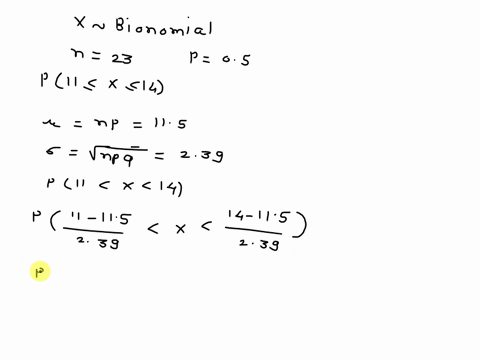 X ~ Bionomial
n = 23 P = 0.5
P(11 ≤ x ≤ 14)
μ = np = 11.5
σ = √npq = 2.39
P(11 < x < 14)
P( (11-11.5)/2.39 < x < (14-11.5)/2.39 )
P